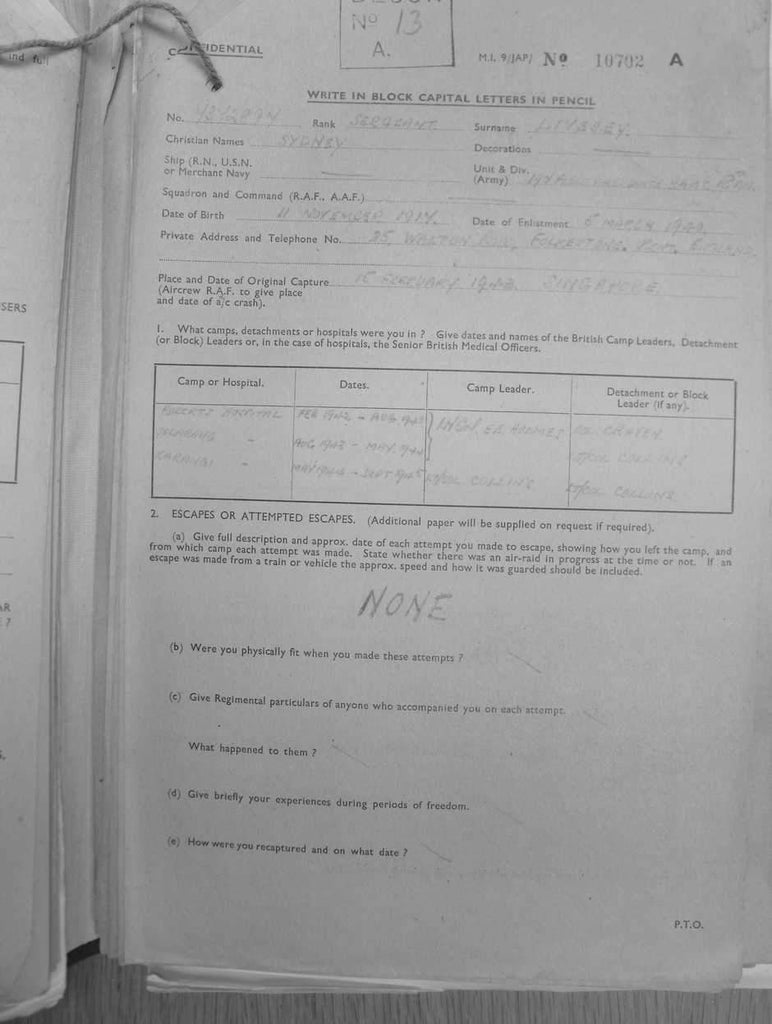 No 13
A.
CONFIDENTIAL
M.I. 9/JAP/ No 10702 A
ind full
WRITE IN BLOCK CAPITAL LETTERS IN PENCIL
No. Rank SERGEANT Surname
Christian Names SYDNEY Decorations
Ship (R.N., U.S.N. or Merchant Navy
Unit & Div. (Army)
Squadron and Command (R.A.F., A.A.F.)
Date of Birth 11 NOVEMBER 1917 Date of Enlistment MARCH
Private Address and Telephone No. 25 FOLKESTONE. KENT. ENGLAND.
Place and Date of Original Capture 15 FEBRUARY 1942 SINGAPORE.
(Aircrew R.A.F. to give place
and date of a/c crash).
SERS
1. What camps, detachments or hospitals were you in ? Give dates and names of the British Camp Leaders, Detachment
(or Block) Leaders or, in the case of hospitals, the Senior British Medical Officers.
Camp or Hospital. Dates. Camp Leader. Detachment or Block Leader (if any).
ROBERTS HOSPITAL FEB 1942 - AUG 1943 HOLMES CRAVEN
SELARANG " AUG 1943 - MAY 1944 LT/COL COLLINS
KRANJI " MAY 1944 - SEPT 1945 LT/COL COLLINS LT/COL COLLINS
2. ESCAPES OR ATTEMPTED ESCAPES. (Additional paper will be supplied on request if required).
(a) Give full description and approx. date of each attempt you made to escape, showing how you left the camp, and
from which camp each attempt was made. State whether there was an air-raid in progress at the time or not. If an
escape was made from a train or vehicle the approx. speed and how it was guarded should be included.
NONE
(b) Were you physically fit when you made these attempts ?
(c) Give Regimental particulars of anyone who accompanied you on each attempt.
What happened to them ?
(d) Give briefly your experiences during periods of freedom.
(e) How were you recaptured and on what date ?
P.T.O.